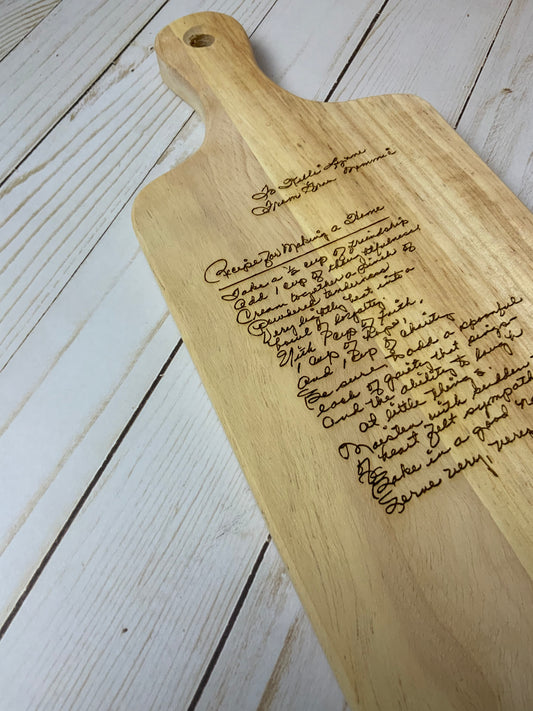 To Kelli Lyne
From Gran Mommie
Recipe for Making a Home
Take a ½ cup of friendship
Add 1 cup of thoughtfulness
Cream together a pinch of
Powdered tenderness
Very lightly beat into a
bowl of loyalty.
With 1 cup of Faith,
1 cup of hope,
And 1 cup of charity
Be sure to add a spoonful
each of gaiety that sings
and the ability to laugh
at little things
Moisten with sudden
of heart felt sympath
Bake in a good
Serve very, very